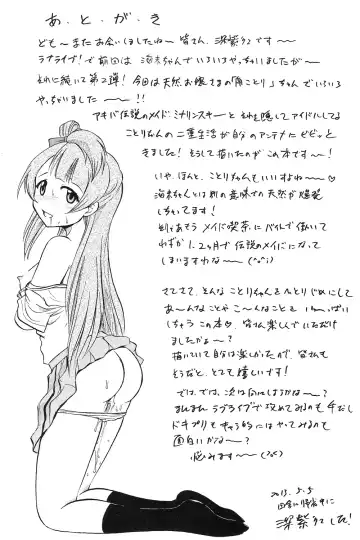 あ・と・が・き
ども〜またお会いしましたね〜皆さん、深紫幻です〜
ラブライブ!で前回は海未ちゃんでいろいろやっちゃいましたが〜
それに続いて第2弾!今回は天然お嬢さまの「南ことり」ちゃんでいろいろ
やっちゃいました〜!!
アキバ伝説のメイド、ミナリンスキーとそれを隠してアイドルしてる
ことりちゃんの二重生活が自分のアンテナにビビッと
きました!そうして描いたのがこの本です〜!
いや、ほんと、ことりちゃんもいいすよね〜♡
海未ちゃんとは別の意味での天然が爆発
しちゃってます!
メイド喫茶にバイトで働いて
わずか1、2ヶ月で伝説のメイドになって
しまいますわな〜
さてさて、そんなことりちゃんをひとりじめにして
あ〜んなことやこ〜んなことを、いっ〜ぱい
しちゃうこの本、皆さん楽しんでいただけ
ましたかぁ〜?
描いていて自分は楽しかったので、皆さんも
そうだと、とても嬉しいです!
では、では、次は何にしようかな〜?
まだまだラブライブで攻めてみるのも手だし
ドキプリも やってみるのも
面白いかな〜?
悩みます〜
2013.5.5
深紫幻でした!